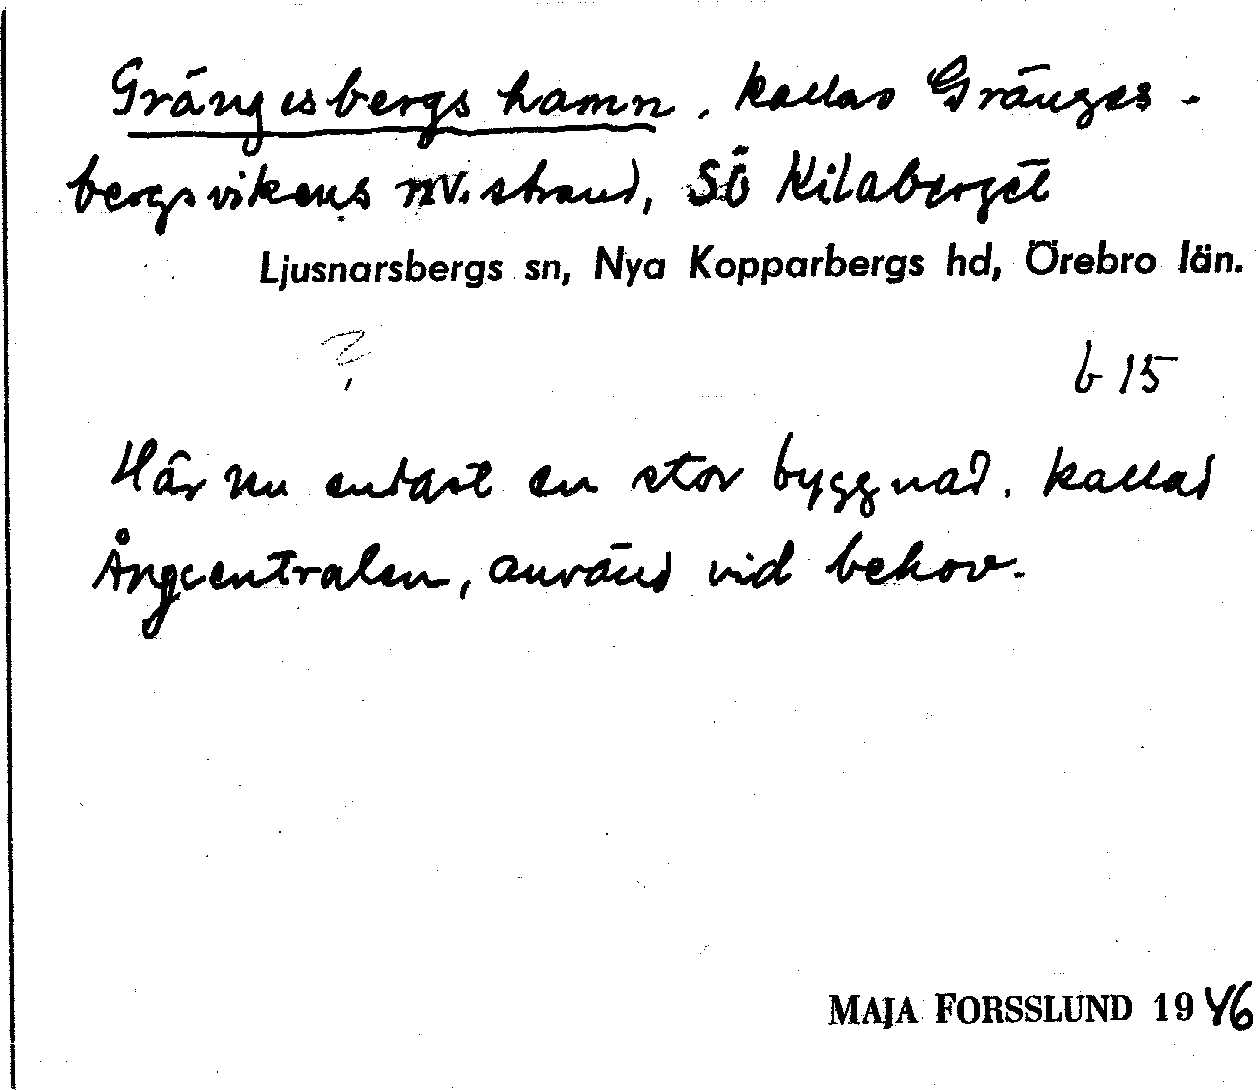 Grängesbergs hamn, kallas Gränges-
bergsvikens nv. strand, SÖ Kilaberget
Ljusnarsbergs sn, Nya Kopparbergs hd, Örebro län.
?
b 15
Här nu endast en stor byggnad, kallad
Ångcentralen, använd vid behov.
MAJA FORSSLUND 1946